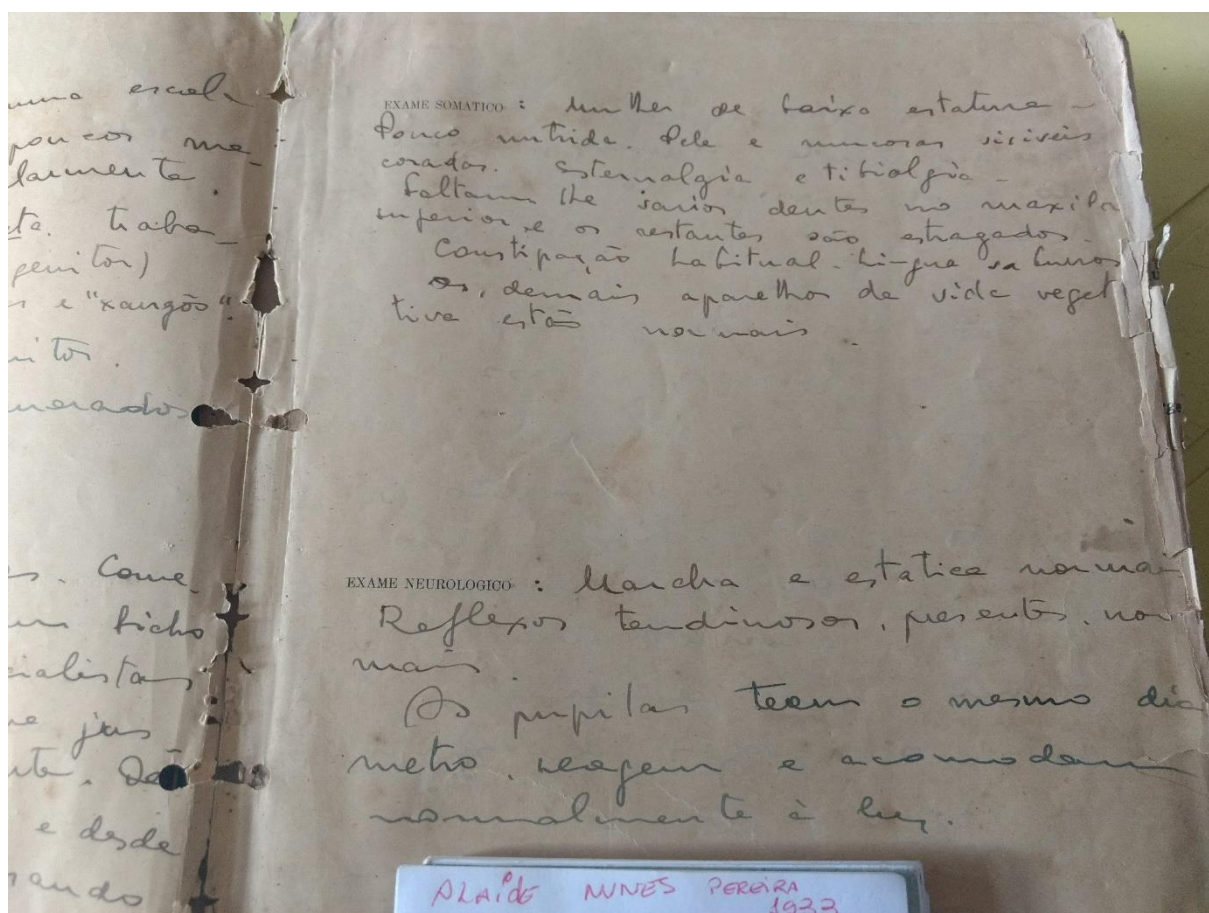 uma escola
poucos me-
larmente.
ta. traba-
genitor)
s e "xangôs".
nitor.
merados
s. Come-
um bicho
cialistas
ue jus
nte. Dão
e desde
rando
EXAME SOMATICO : Mulher de baixa estatura -
Pouco nutrida. Pele e mucosas visiveis
coradas. Esternalgia e tibialgia -
Faltam lhe varios dentes no maxilar
superior, e os restantes são estragados.
Constipação habitual. Lingua saburros
Os, demais aparelhos da vida veget
tiva estão normais.
EXAME NEUROLOGICO : Marcha e estatica normai
Reflexos tendinosos, presentes, nor
mais.
As pupilas teem o mesmo diâ
metro, reagem e acomodam
normalmente à luz.
ALAÍDE NUNES PEREIRA
1933